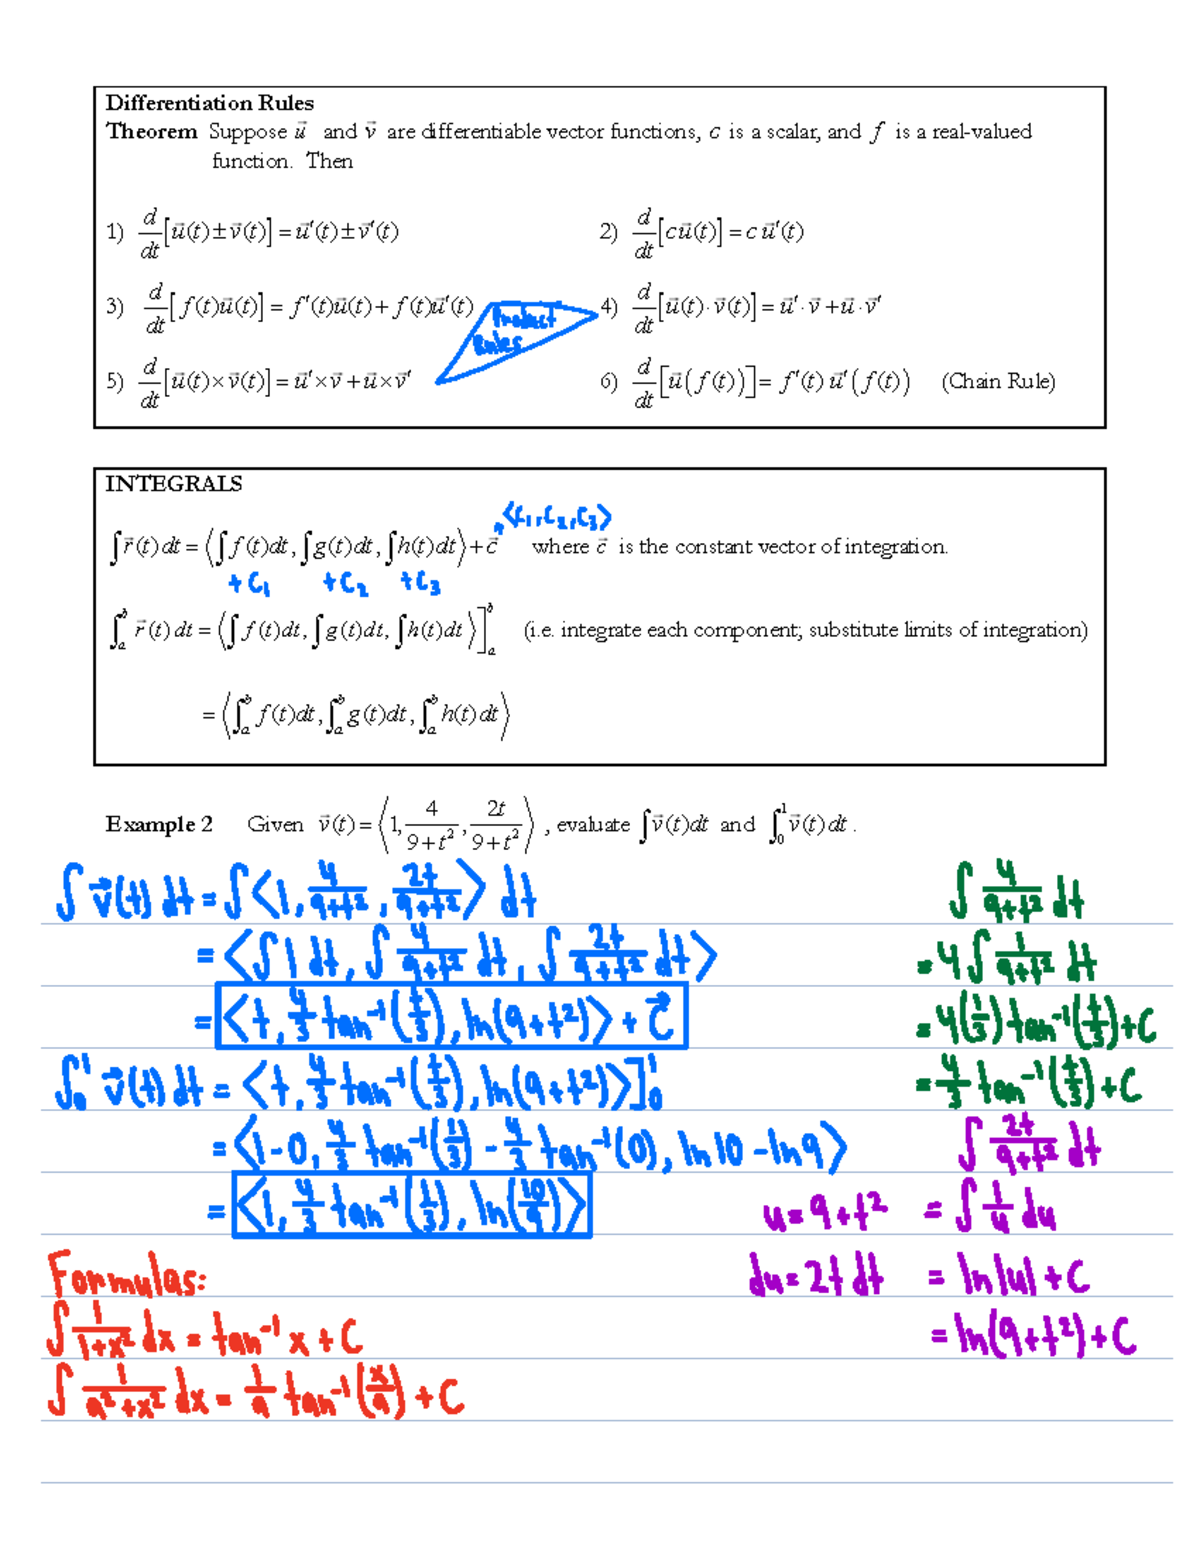 Differentiation Rules
Theorem Suppose u⃗ and v⃗ are differentiable vector functions, c is a scalar, and f is a real-valued
function. Then
1) d/dt [u⃗(t) ± v⃗(t)] = u⃗′(t) ± v⃗′(t) 2) d/dt [c u⃗(t)] = c u⃗′(t)
3) d/dt [f(t)u⃗(t)] = f′(t)u⃗(t) + f(t)u⃗′(t) 4) d/dt [u⃗(t)·v⃗(t)] = u⃗′·v⃗ + u⃗·v⃗′
Product
Rules
5) d/dt [u⃗(t)×v⃗(t)] = u⃗′×v⃗ + u⃗×v⃗′ 6) d/dt [u⃗(f(t))] = f′(t) u⃗′(f(t)) (Chain Rule)
INTEGRALS
<C₁, C₂, C₃>
∫r⃗(t)dt = ⟨∫f(t)dt, ∫g(t)dt, ∫h(t)dt⟩ + c⃗ where c⃗ is the constant vector of integration.
+C₁ +C₂ +C₃
∫ₐᵇ r⃗(t)dt = ⟨∫f(t)dt, ∫g(t)dt, ∫h(t)dt⟩]ₐᵇ (i.e. integrate each component; substitute limits of integration)
= ⟨∫ₐᵇ f(t)dt, ∫ₐᵇ g(t)dt, ∫ₐᵇ h(t)dt⟩
Example 2 Given v⃗(t) = ⟨1, 4/(9+t²), 2t/(9+t²)⟩, evaluate ∫v⃗(t)dt and ∫₀¹ v⃗(t)dt.
∫v⃗(t)dt = ∫<1, 4/(9+t²), 2t/(9+t²)> dt
= <∫1dt, ∫4/(9+t²) dt, ∫2t/(9+t²) dt>
= <t, 4/3 tan⁻¹(t/3), ln(9+t²)> + C⃗
∫₀¹ v⃗(t)dt = <t, 4/3 tan⁻¹(t/3), ln(9+t²)>]₀¹
= <1-0, 4/3 tan⁻¹(1/3) - 4/3 tan⁻¹(0), ln10 - ln9>
= <1, 4/3 tan⁻¹(1/3), ln(10/9)>
∫4/(9+t²) dt
= 4∫1/(9+t²) dt
= 4(1/3)tan⁻¹(t/3)+C
= 4/3 tan⁻¹(t/3)+C
∫2t/(9+t²) dt
u = 9+t² = ∫1/u du
du = 2t dt = ln|u|+C
= ln(9+t²)+C
Formulas:
∫1/(1+x²) dx = tan⁻¹x + C
∫1/(a²+x²) dx = 1/a tan⁻¹(x/a) + C